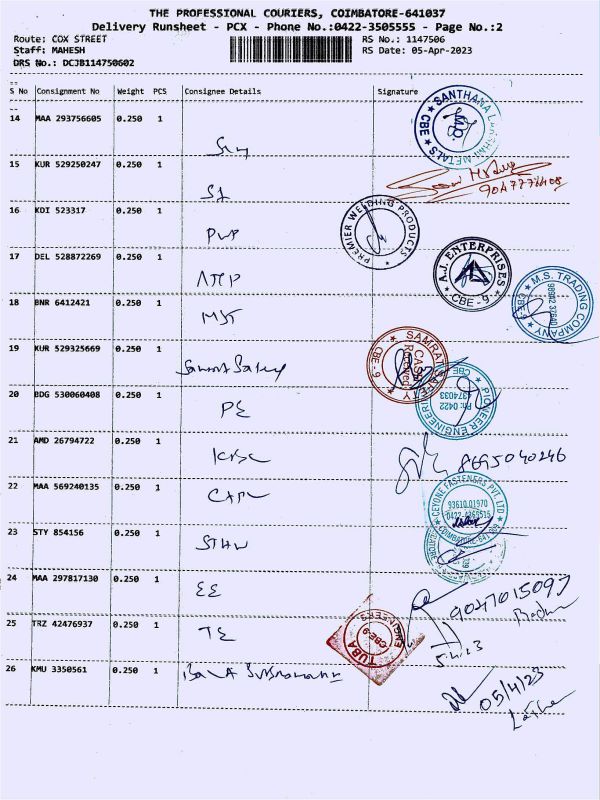 THE PROFESSIONAL COURIERS, COIMBATORE-641037
Delivery Runsheet - PCX - Phone No.:0422-3505555 - Page No.:2
Route: COX STREET RS No.: 1147506
Staff: MAHESH RS Date: 05-Apr-2023
DRS No.: DCJB114750602
S No Consignment No Weight PCS Consignee Details Signature
14 MAA 293756605 0.250 1
SANTHANA METALS CBE
15 KUR 529250247 0.250 1
16 KDI 523317 0.250 1 PWP
PREMIER WELDING PRODUCTS
17 DEL 528872269 0.250 1
A.J. ENTERPRISES CBE - 9
18 BNR 6412421 0.250 1 MST
M.S. TRADING COMPANY CBE-9 98942 37640
19 KUR 529325669 0.250 1
SAMRAT SAFETY CBE - 9
20 BDG 530060408 0.250 1 PE
PIONEER ENGINEERING CBE PH: 0422 4374033
21 AMD 26794722 0.250 1
8695040246
22 MAA 569240135 0.250 1
CEYONE FASTENERS PVT. LTD 93610 01970
COIMBATORE
23 STY 854156 0.250 1
24 MAA 297817130 0.250 1 EE
9047015097
25 TRZ 42476937 0.250 1 TE
TUBA ENGINEERS CBE-9
5.4.23
26 KMU 3350561 0.250 1
05/4/23